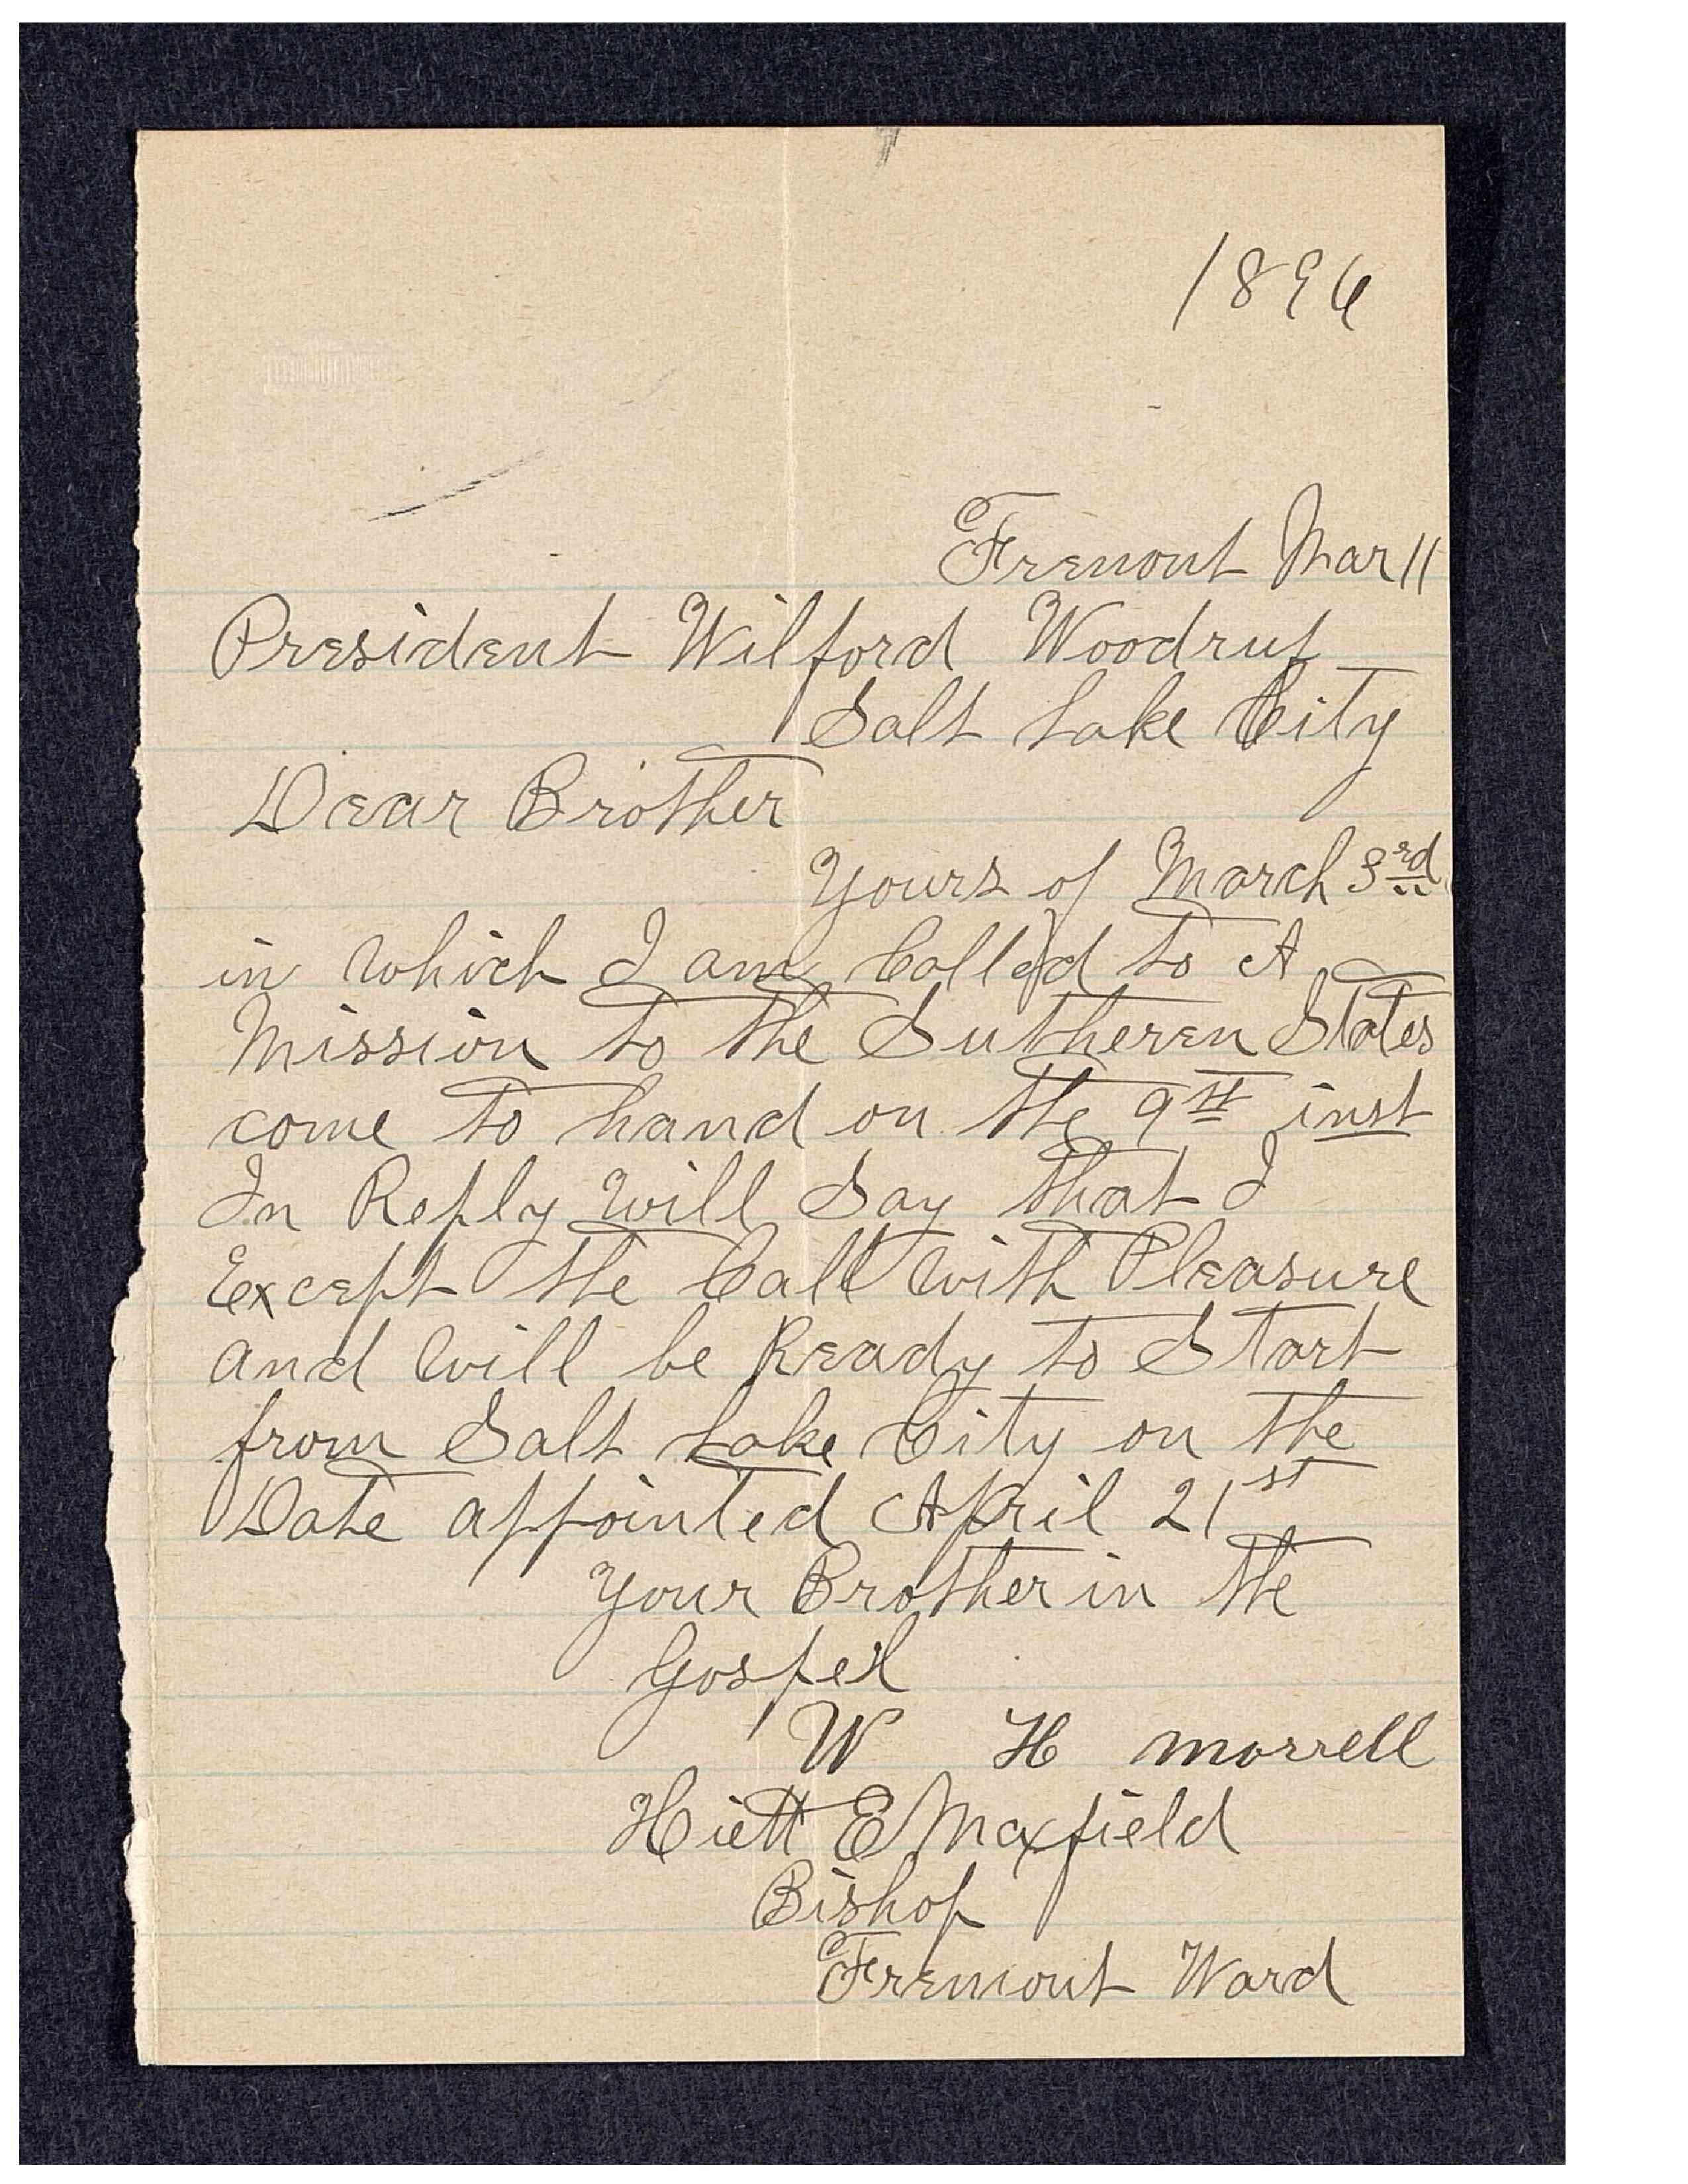 1896
Fremont Mar 11
President Wilford Woodruf
Salt Lake City
Dear Brother
Yours of March 3rd
in which I am Called to A
Mission to the Sutheren States
come to hand on the 9st inst
In Reply will Say that I
Except the Call with Pleasure
and will be Ready to Start
from Salt Lake City on the
Date appointed April 21st
Your Brother in the
Gospel
W H morrell
Hiett E Maxfield
Bishop
Fremont Ward